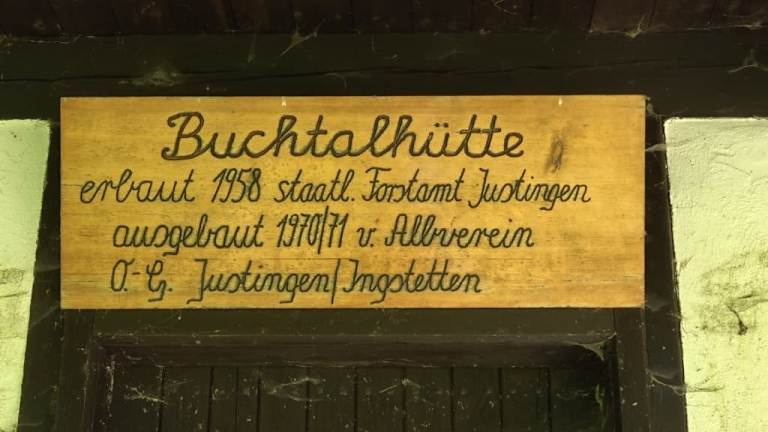 Buchtalhütte
erbaut 1958 staatl. Forstamt Justingen
ausgebaut 1970/71 v. Albverein
O.-G. Justingen/Ingstetten